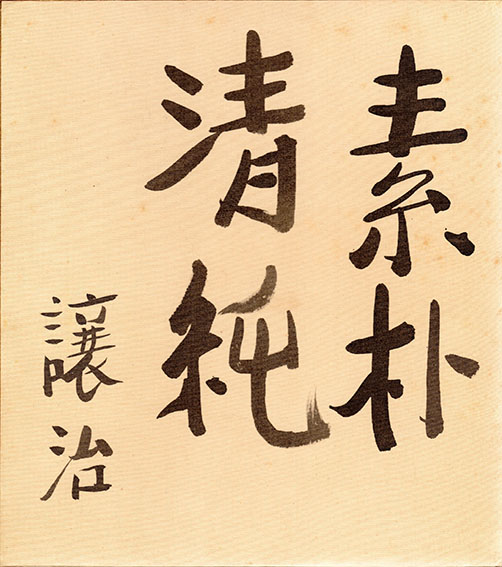 素朴
清純
譲治